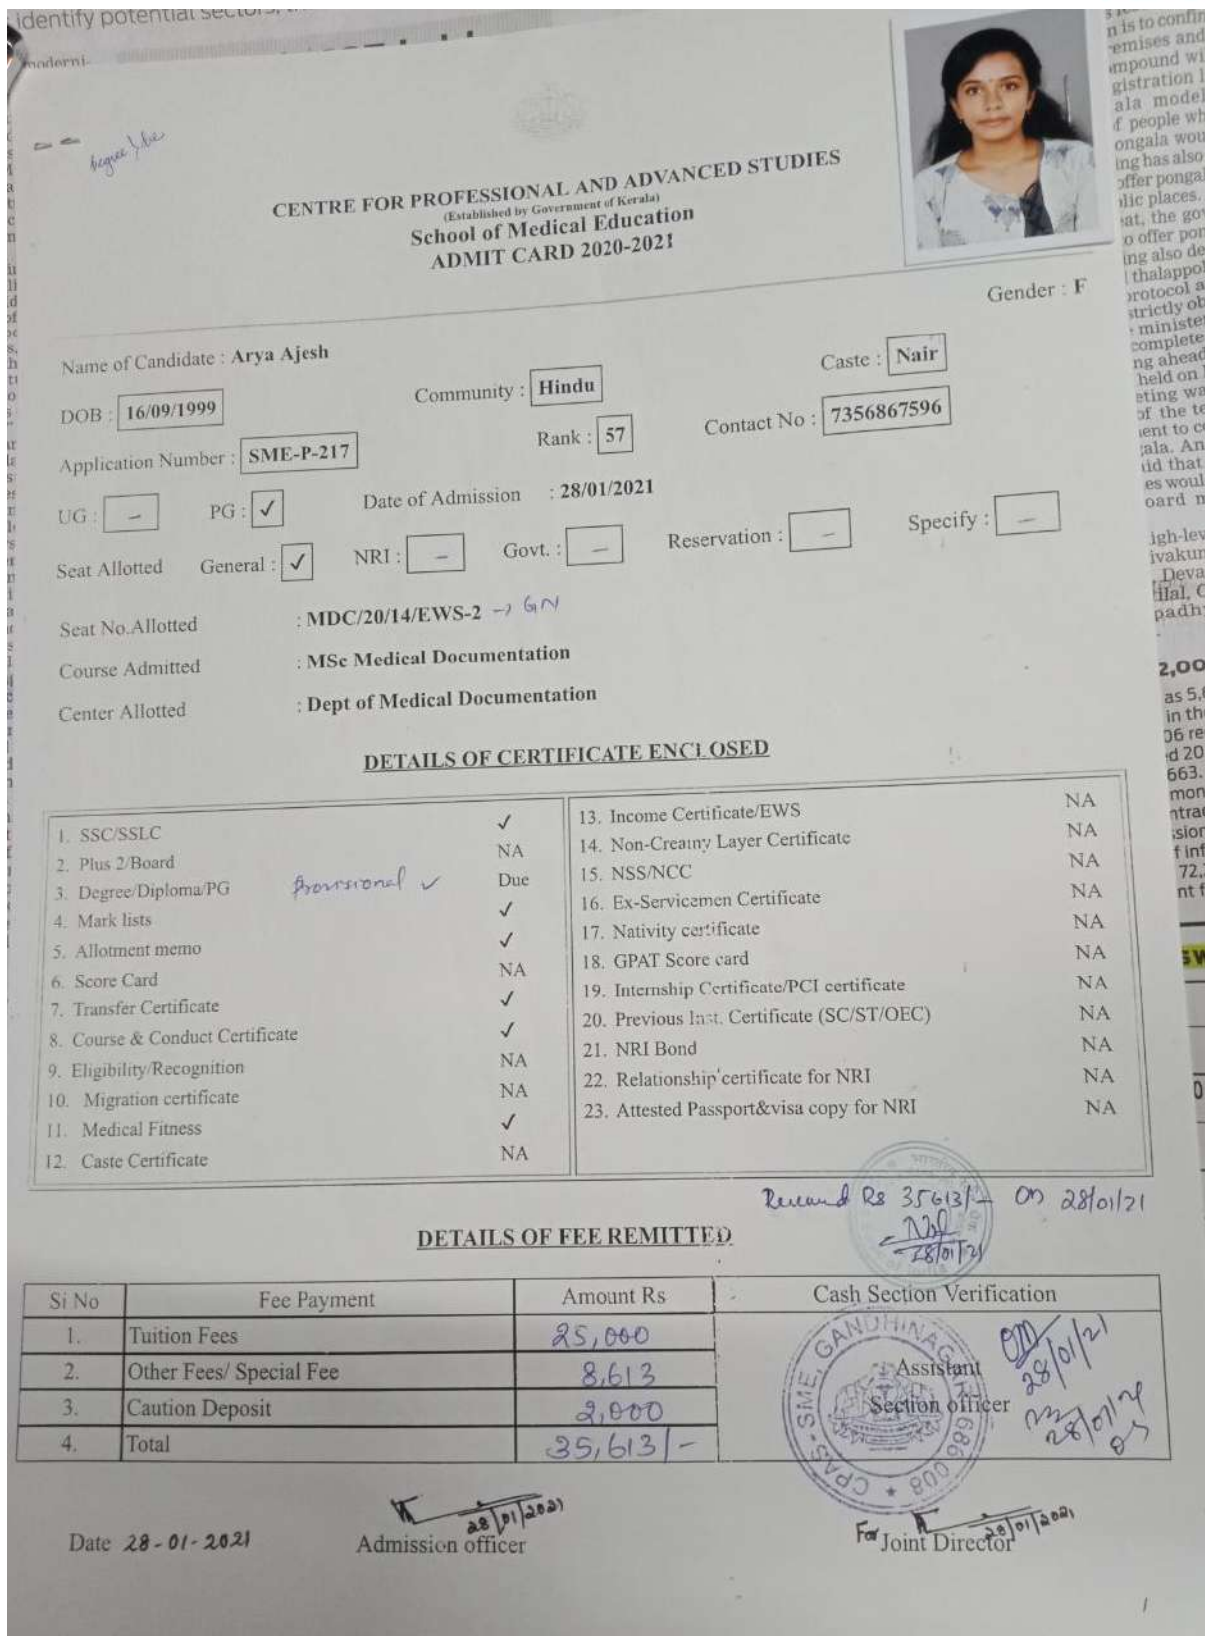 identify potential sectors,
moderni-
Degree
CENTRE FOR PROFESSIONAL AND ADVANCED STUDIES
(Established by Government of Kerala)
School of Medical Education
ADMIT CARD 2020-2021
Gender : F
Name of Candidate : Arya Ajesh
Caste : Nair
DOB : 16/09/1999 Community : Hindu
Contact No : 7356867596
Application Number : SME-P-217 Rank : 57
UG : – PG : ✓ Date of Admission : 28/01/2021
Seat Allotted General : ✓ NRI : – Govt. : – Reservation : – Specify : –
Seat No.Allotted : MDC/20/14/EWS-2 → GN
Course Admitted : MSc Medical Documentation
Center Allotted : Dept of Medical Documentation
DETAILS OF CERTIFICATE ENCLOSED
1. SSC/SSLC ✓
2. Plus 2/Board NA
3. Degree/Diploma/PG Provisional ✓ Due
4. Mark lists ✓
5. Allotment memo ✓
6. Score Card NA
7. Transfer Certificate ✓
8. Course & Conduct Certificate ✓
9. Eligibility/Recognition NA
10. Migration certificate NA
11. Medical Fitness ✓
12. Caste Certificate NA
13. Income Certificate/EWS NA
14. Non-Creamy Layer Certificate NA
15. NSS/NCC NA
16. Ex-Servicemen Certificate NA
17. Nativity certificate NA
18. GPAT Score card NA
19. Internship Certificate/PCI certificate NA
20. Previous Inst. Certificate (SC/ST/OEC) NA
21. NRI Bond NA
22. Relationship certificate for NRI NA
23. Attested Passport&visa copy for NRI NA
Received Rs 35613/- On 28/01/21
28/01/21
DETAILS OF FEE REMITTED
Si No Fee Payment Amount Rs Cash Section Verification
1. Tuition Fees 25,000
2. Other Fees/ Special Fee 8,613
3. Caution Deposit 2,000
4. Total 35,613/-
Assistant 28/01/21
Section officer
CPAS-SME, GANDHINAGAR 686 008
28/01/2021
Date 28-01-2021 Admission officer
For Joint Director 28/01/2021